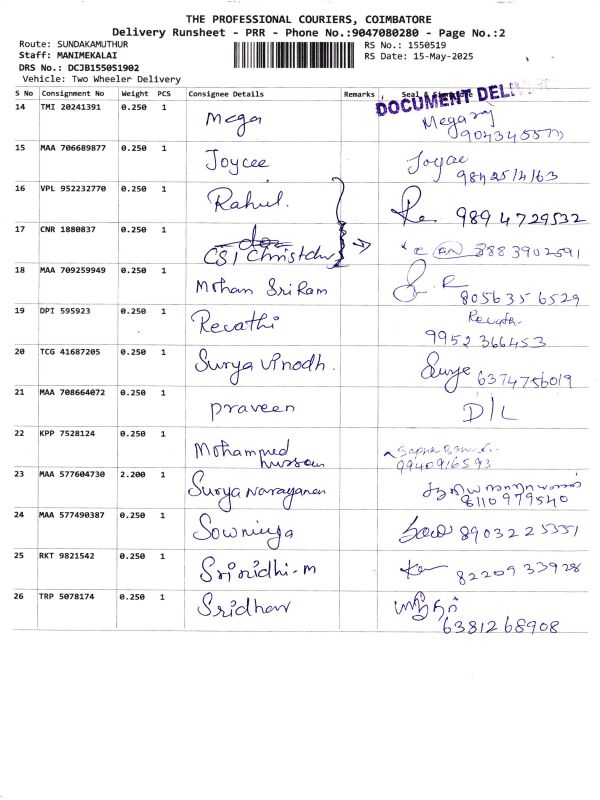 THE PROFESSIONAL COURIERS, COIMBATORE
Delivery Runsheet - PRR - Phone No.:9047080280 - Page No.:2
Route: SUNDAKAMUTHUR RS No.: 1550519
Staff: MANIMEKALAI RS Date: 15-May-2025
DRS No.: DCJB155051902
Vehicle: Two Wheeler Delivery
S No Consignment No Weight PCS Consignee Details Remarks Seal &
DOCUMENT DELI
14 TMI 20241391 0.250 1 Mega Megaraj
15 MAA 706689877 0.250 1 Joycee Joycee
16 VPL 952232770 0.250 1 Rahul. 9894729532
17 CNR 1880837 0.250 1 CSI 8883902591
18 MAA 709259949 0.250 1 Mohan Sri Ram
8056356529
19 DPI 595923 0.250 1 Revathi Revathi
9952366453
20 TCG 41687205 0.250 1 Surya Vinodh. Surya 6374756019
21 MAA 708664072 0.250 1 praveen D/L
22 KPP 7528124 0.250 1 Mohammed
hussain 9940916593
23 MAA 577604730 2.200 1 Surya Narayanan
8110979540
24 MAA 577490387 0.250 1 Sowmiya 8903225551
25 RKT 9821542 0.250 1 Srinidhi-m
8220933928
26 TRP 5078174 0.250 1 Sridhar ஸ்ரீதர்
6381268908